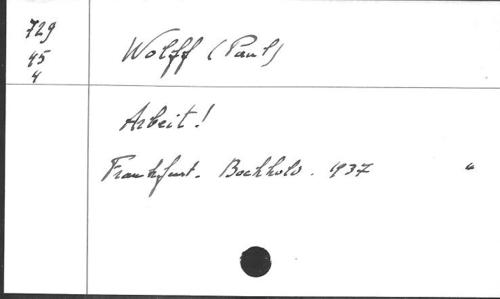 729
45
4
Wolff (Paul)
Arbeit!
Frankfurt. Bechhold. 1937 "